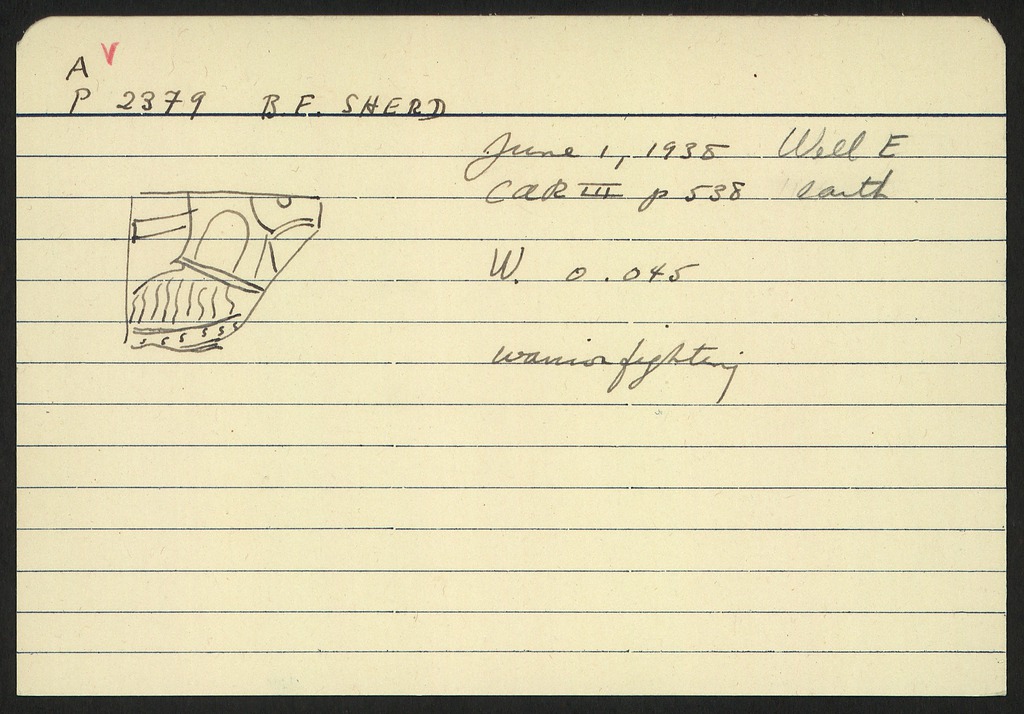 A V
P 2379 B.F. SHERD
June 1, 1938 Well E
CaR III p 538 earth
W. 0.045
warrior fighting